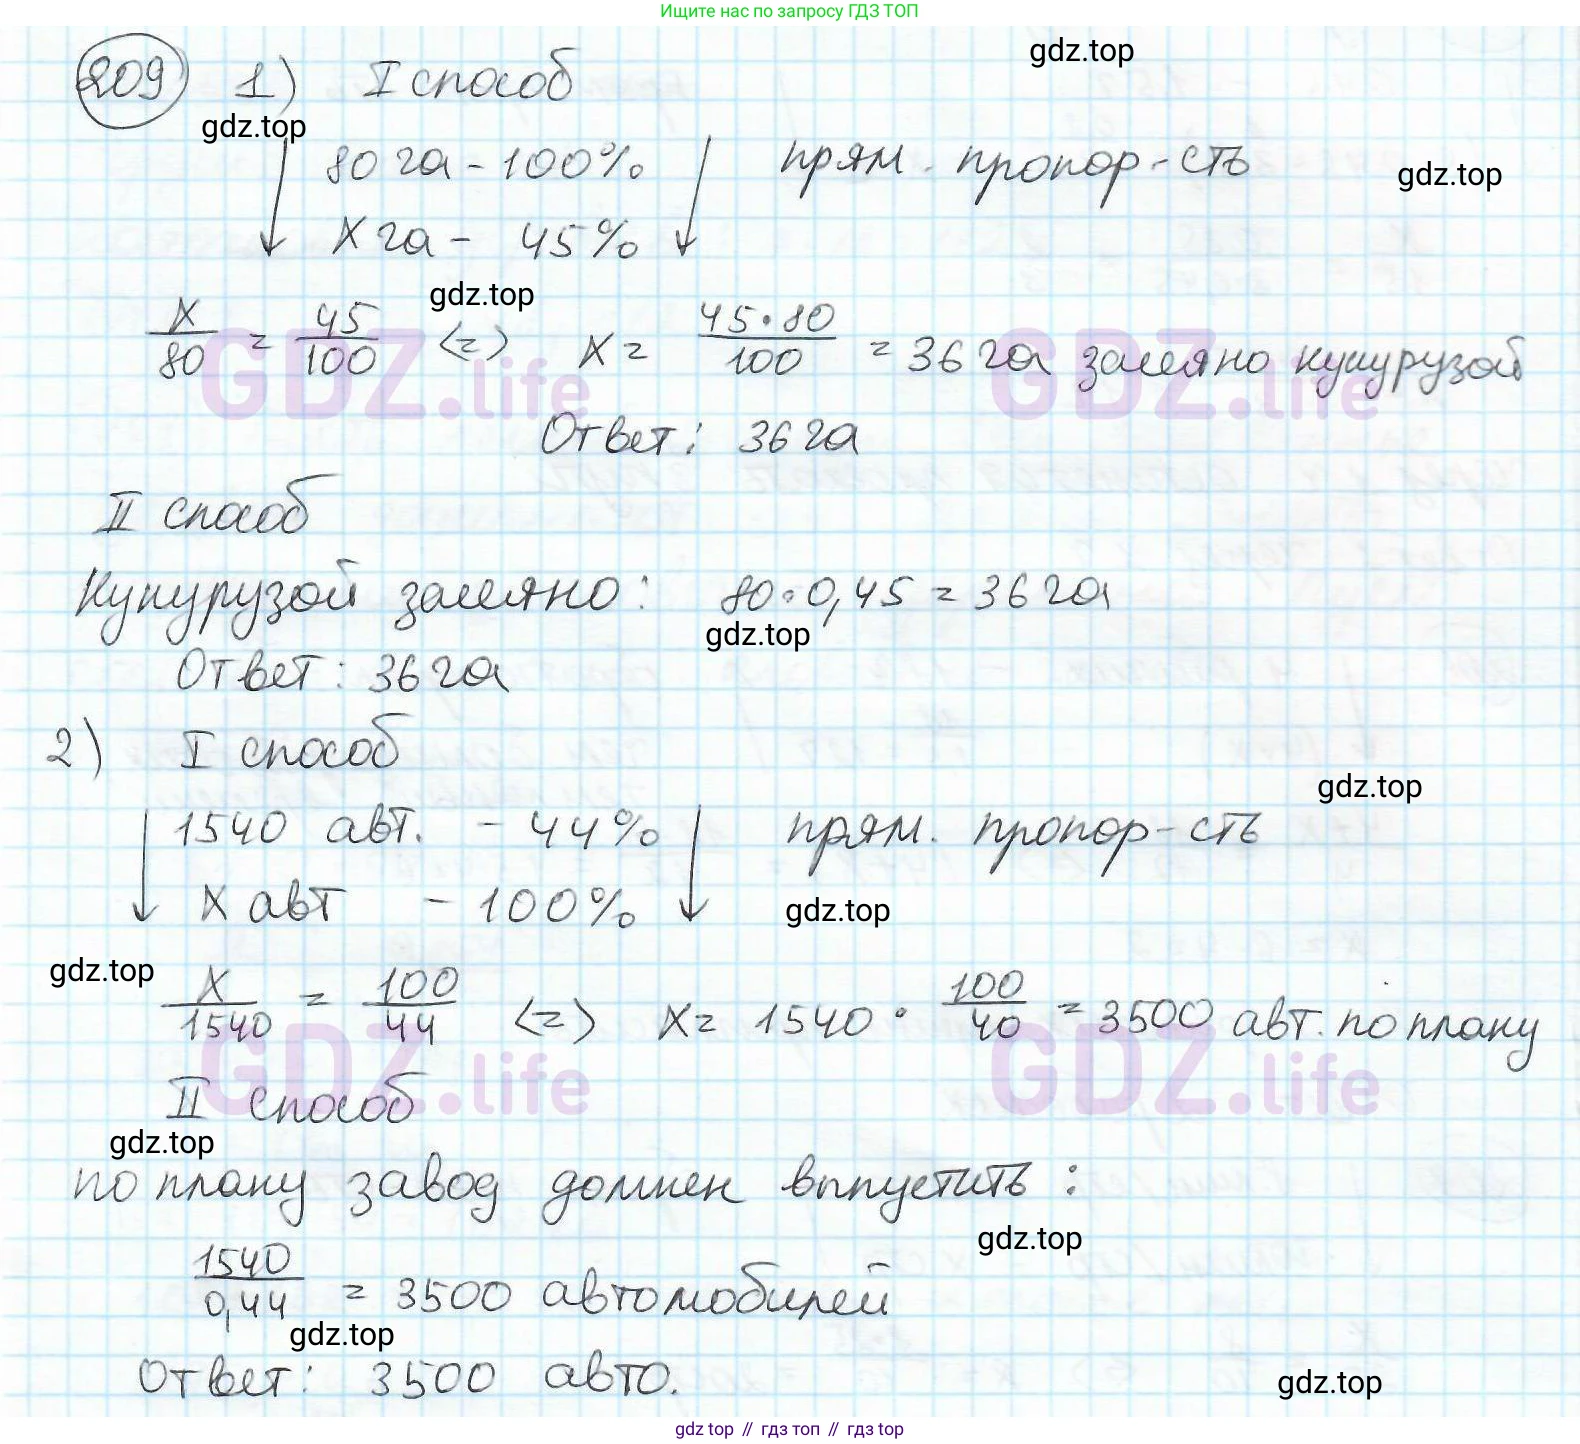 Ищите нас по запросу ГДЗ ТОП
209 1) I способ
gdz.top
gdz.top
80 га - 100% прям. пропор-сть
gdz.top
X га - 45%
gdz.top
X/80 = 45/100 <=> X = 45·80/100 = 36 га засеяно кукурузой
GDZ.life GDZ.life
Ответ: 36 га
II способ
Кукурузой засеяно: 80·0,45 = 36 га
gdz.top
Ответ: 36 га
2) I способ
gdz.top
1540 авт. - 44% прям. пропор-сть
X авт - 100%
gdz.top
gdz.top
X/1540 = 100/44 <=> X = 1540 · 100/40 = 3500 авт. по плану
GDZ.life GDZ.life
II способ
gdz.top
по плану завод должен выпустить:
gdz.top
1540/0,44 = 3500 автомобилей
gdz.top
Ответ: 3500 авто.
gdz.top
gdz top // гдз топ // gdz top